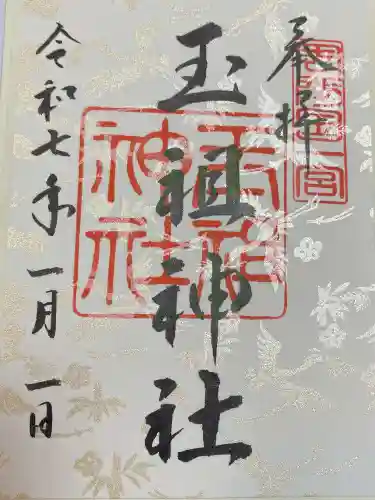 奉拝
周防國一宮
玉祖神社
玉祖神社
令和七年一月一日